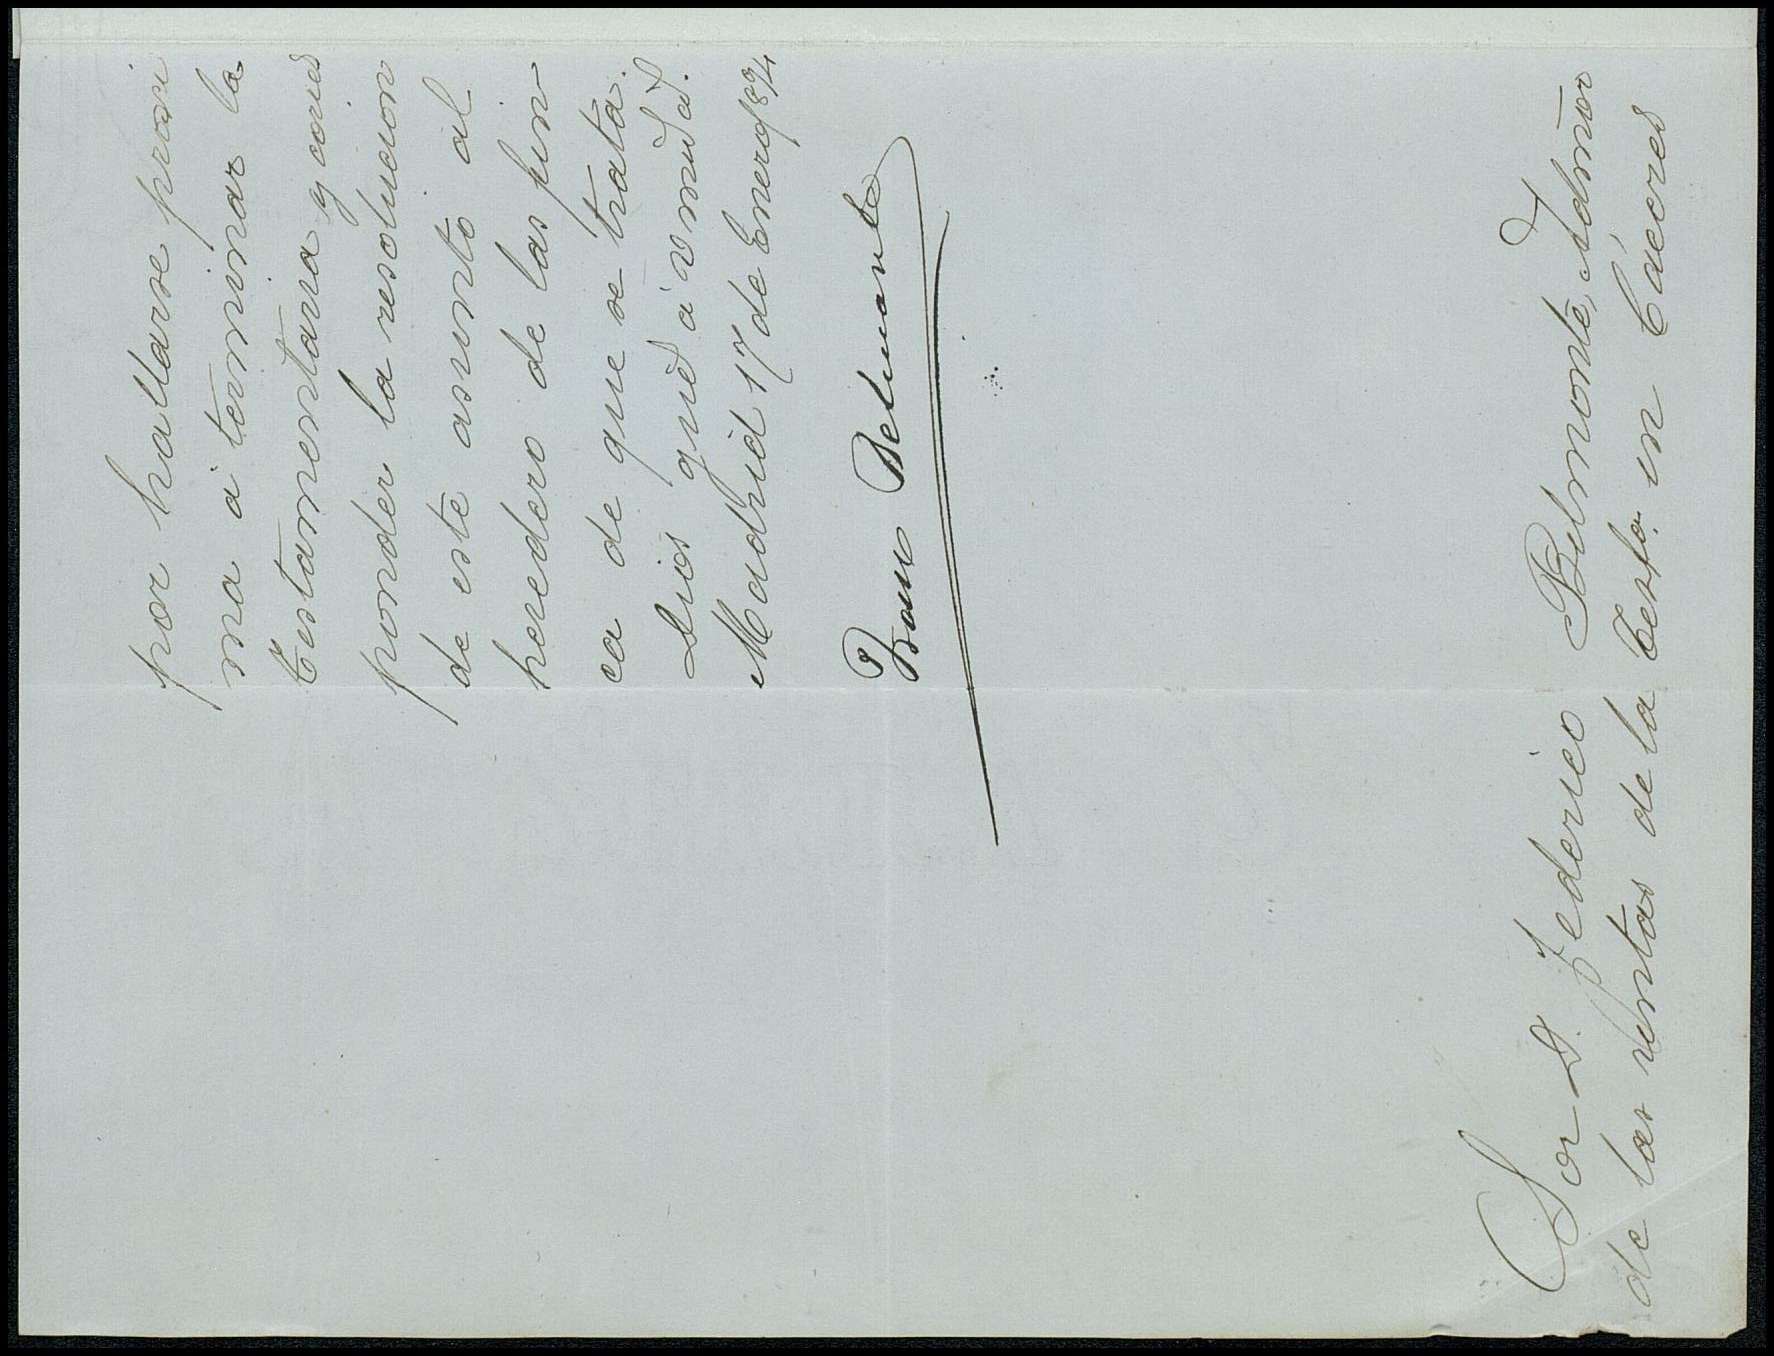 por hallarse proxi
ma á terminar la
testamentaria y corres
ponder la resolucion
de este asunto al
heredero de las fin-
ca de que se trata.
Dios gue á V muchos a.s
Madrid 17 de Enero/874
Belmonte
Sor D. Federico Belmonte, Admor
de las rentas de la Testa. en Cáceres